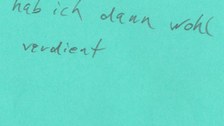 hab ich dann wohl
verdient